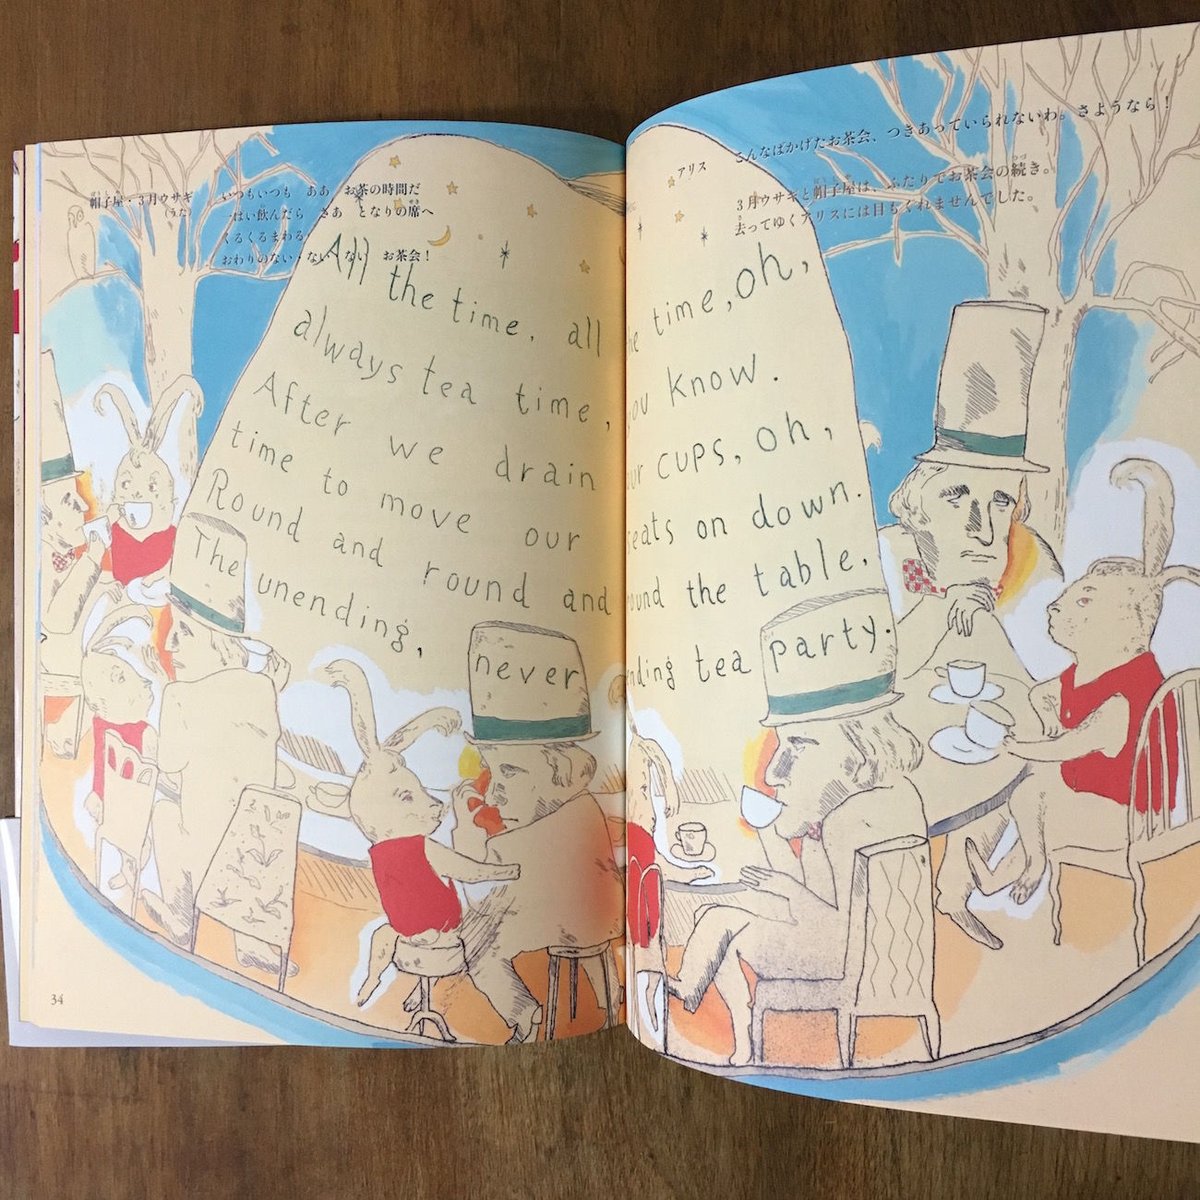 帽子屋・3月ウサギ　いつもいつも　ああ　お茶の時間だ
(うた)　一ぱい飲んだら　さあ　となりの席へ
くるくるまわる
おわりのない・ない・ない　お茶会！
アリス　こんなばかげたお茶会、つきあっていられないわ。さようなら！
3月ウサギと帽子屋は、ふたりでお茶会の続き。
去ってゆくアリスには目もくれませんでした。
All the time, all time, oh,
always tea time, you know.
After we drain our cups, oh,
time to move our seats on down.
Round and round and round the table.
The unending, never nding tea party.
34